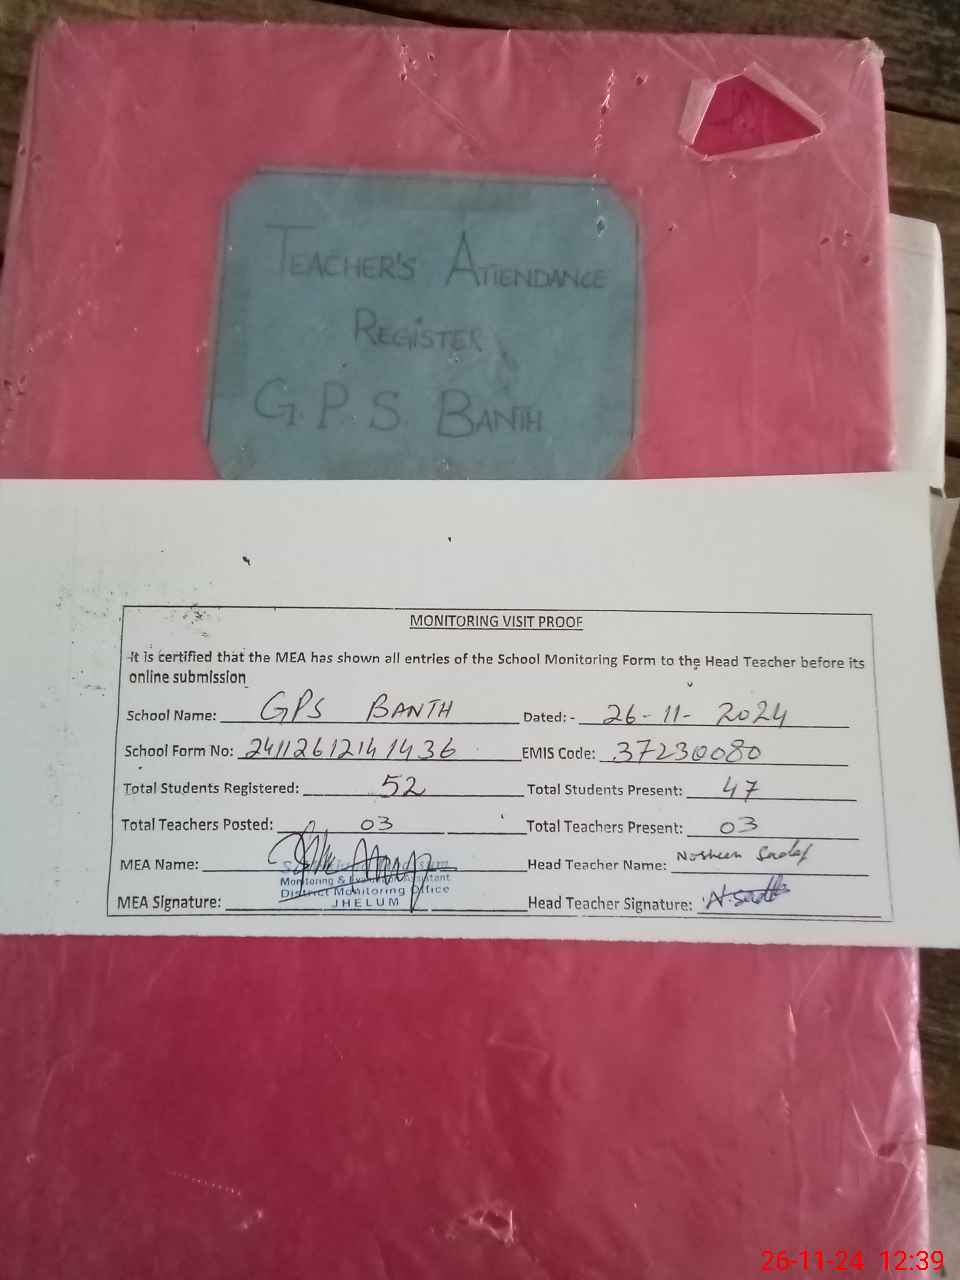 TEACHER'S ATTENDANCE
REGISTER
G.P.S. BANTH
MONITORING VISIT PROOF
It is certified that the MEA has shown all entries of the School Monitoring Form to the Head Teacher before its
online submission
School Name: GPS BANTH Dated: - 26-11-2024
School Form No: 24112612141436 EMIS Code: 37230080
Total Students Registered: 52 Total Students Present: 47
Total Teachers Posted: 03 Total Teachers Present: 03
MEA Name: Head Teacher Name: Nosheen Sadaf
Monitoring & Evaluation Assistant
District Monitoring Office
JHELUM
MEA Signature: Head Teacher Signature: N.Sadaf
26-11-24 12:39